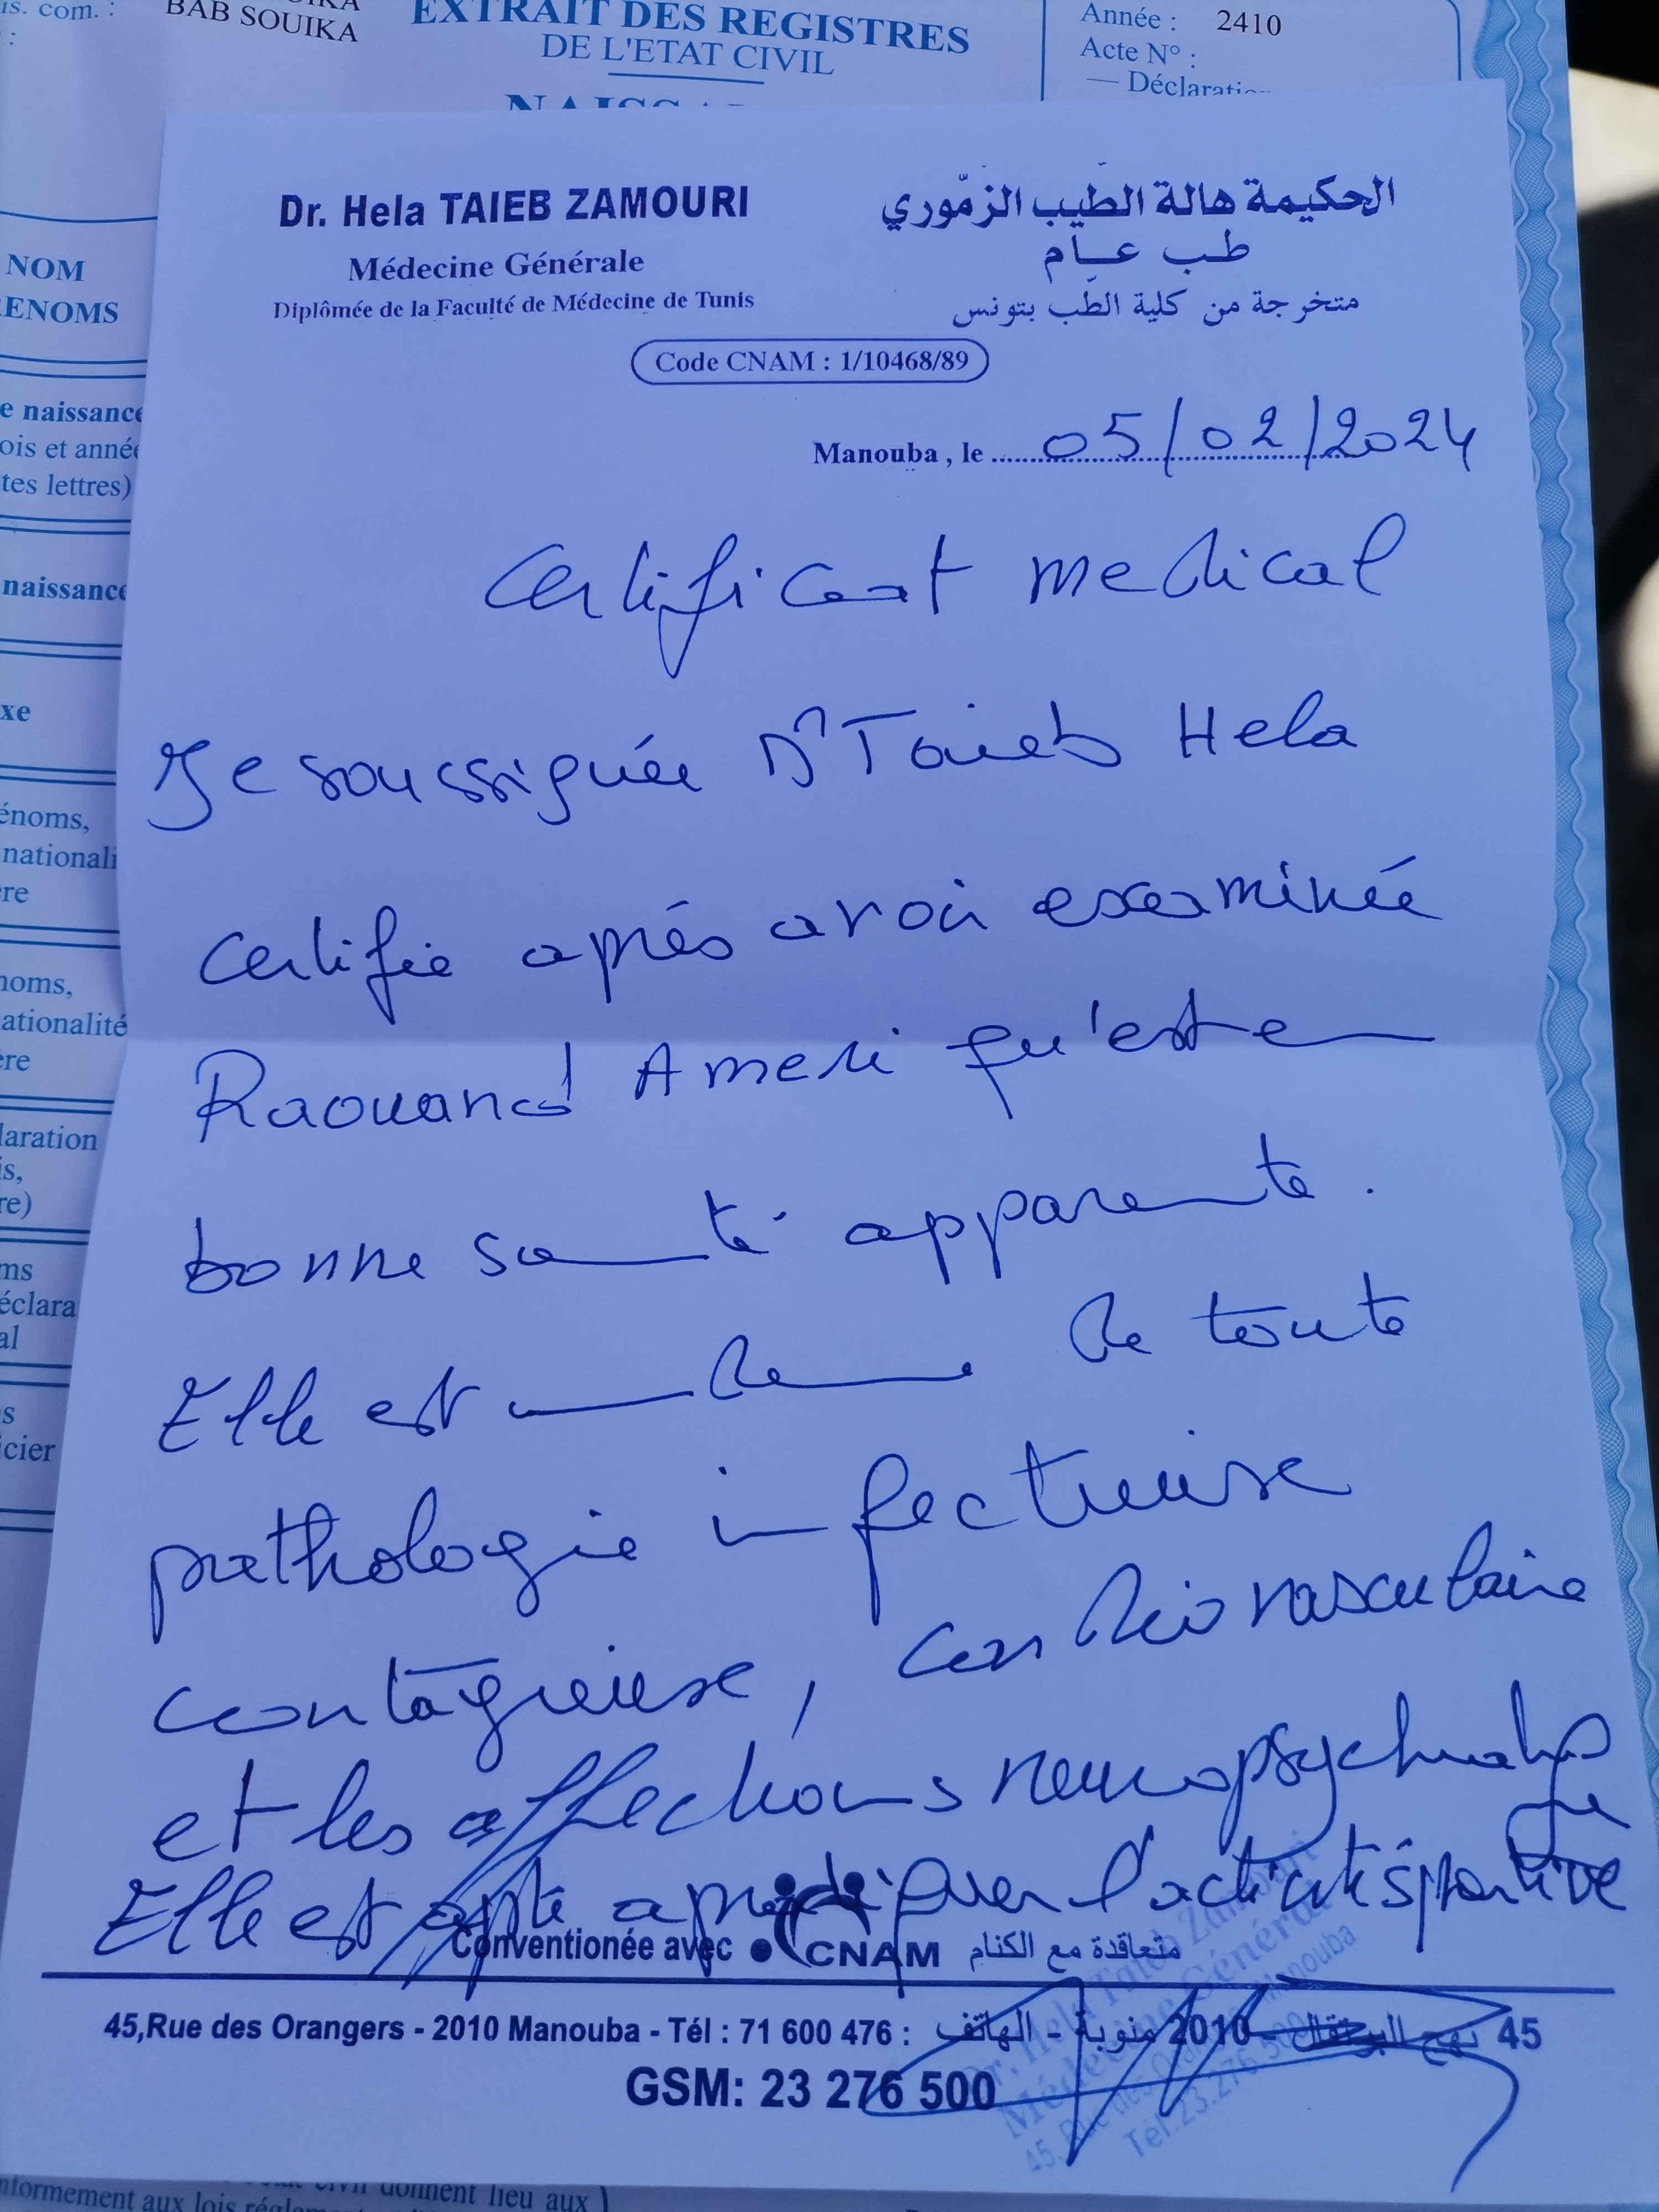 is. com. :
BAB SOUIKA
EXTRAIT DES REGISTRES
DE L'ETAT CIVIL
Année : 2410
Acte N° :
— Déclaration
NOM
ENOMS
e naissance
ois et année
tes lettres)
naissance
xe
énoms,
nationali
re
noms,
ationalité
ère
laration
is,
re)
ms
éclara
al
s
icier
Dr. Hela TAIEB ZAMOURI
الحكيمة هالة الطّيب الزمّوري
Médecine Générale
طب عــام
Diplômée de la Faculté de Médecine de Tunis
متخرجة من كلية الطّب بتونس
Code CNAM : 1/10468/89
Manouba , le 05/02/2024
Certificat medical
Je soussignée Dr Taieb Hela
certifie aprés avoir examinée
Raouand Ameri qu'est en
bonne santé apparente.
Elle est indemne de toute
pathologie infectieuse
contagieuse, cardiovasculaire
et les affections neuropsychiatrique
Elle est apte a pratiquer l'activité sportive
Conventionée avec CNAM متعاقدة مع الكنام
45,Rue des Orangers - 2010 Manouba - Tél : 71 600 476 : الهاتف - منوبة 2010 - نهج البرتقال 45
GSM: 23 276 500
Dr. Hela Taieb Zamouri
Médecine Générale
45, Rue des Orangers Manouba
Tél: 23.276.500
nformement aux lois
civil donnent lieu aux